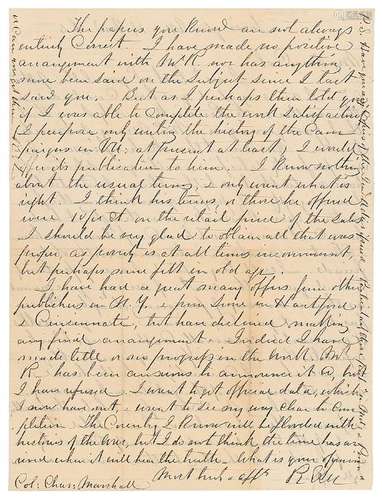 The papers you know are not always
entirely correct. I have made no positive
arrangement with Mr R. nor has anything
more been said on the subject since I last
saw you. But as I perhaps then told you
if I was able to complete the work satisfactorily
I propose only writing the history of the Cam
paigns in Va: at present at least; I would
offer its publication to him. I know nothing
about the usual terms, & only want what is
right. I think his terms, or those he offered
were 10 per Ct on the retail price of the sales
I should be very glad to obtain all that was
proper, as poverty is at all times inconvenient,
but perhaps more felt in old age.
I have had a great many offers from other
publishers in N. Y. & from some in Hartford
& Cincinnati, but have declined making
any final arrangement. Indeed I have
made little or no progress in the work. Mr
R. has been anxious to announce it &c, but
I have refused. I want to get official data, which
I now have not, & want to see my way clear to com
pletion. The Country I know will be flooded with
histories of the war, but I do not think the time has ar
rived when it will hear the truth. What is your opinion
Most truly & affly
R E Lee
Col: Chas: Marshall